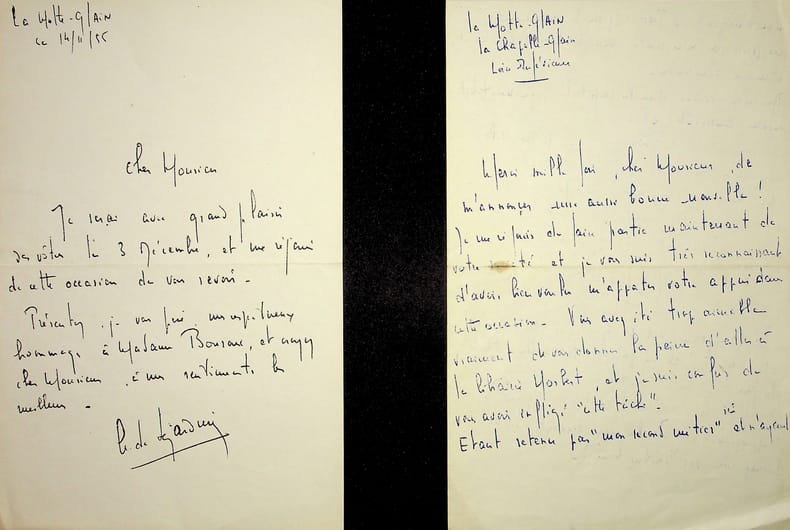 La Motte-Glain
ce 14/11/55
Cher Monsieur
Je serai avec grand plaisir
des vôtres le 3 Décembre, et me réjouis
de cette occasion de vous revoir -
Présentez, je vous prie, mes respectueux
hommages à Madame, et croyez
cher Monsieur, à mes sentiments les
meilleurs -
La Motte-Glain
La Chapelle-Glain
Loire Inférieure
Merci mille fois, cher Monsieur, de
m'annoncer une aussi bonne nouvelle !
Je me réjouis de faire partie maintenant de
votre et je vous suis très reconnaissant
d'avoir bien voulu m'apporter votre appui dans
cette occasion - Vous avez été trop aimable
vraiment de vous donner la peine d'aller à
la librairie, et je suis confus de
vous avoir infligé "cette tâche".
Etant retenu par "mon second métier" et n'ayant